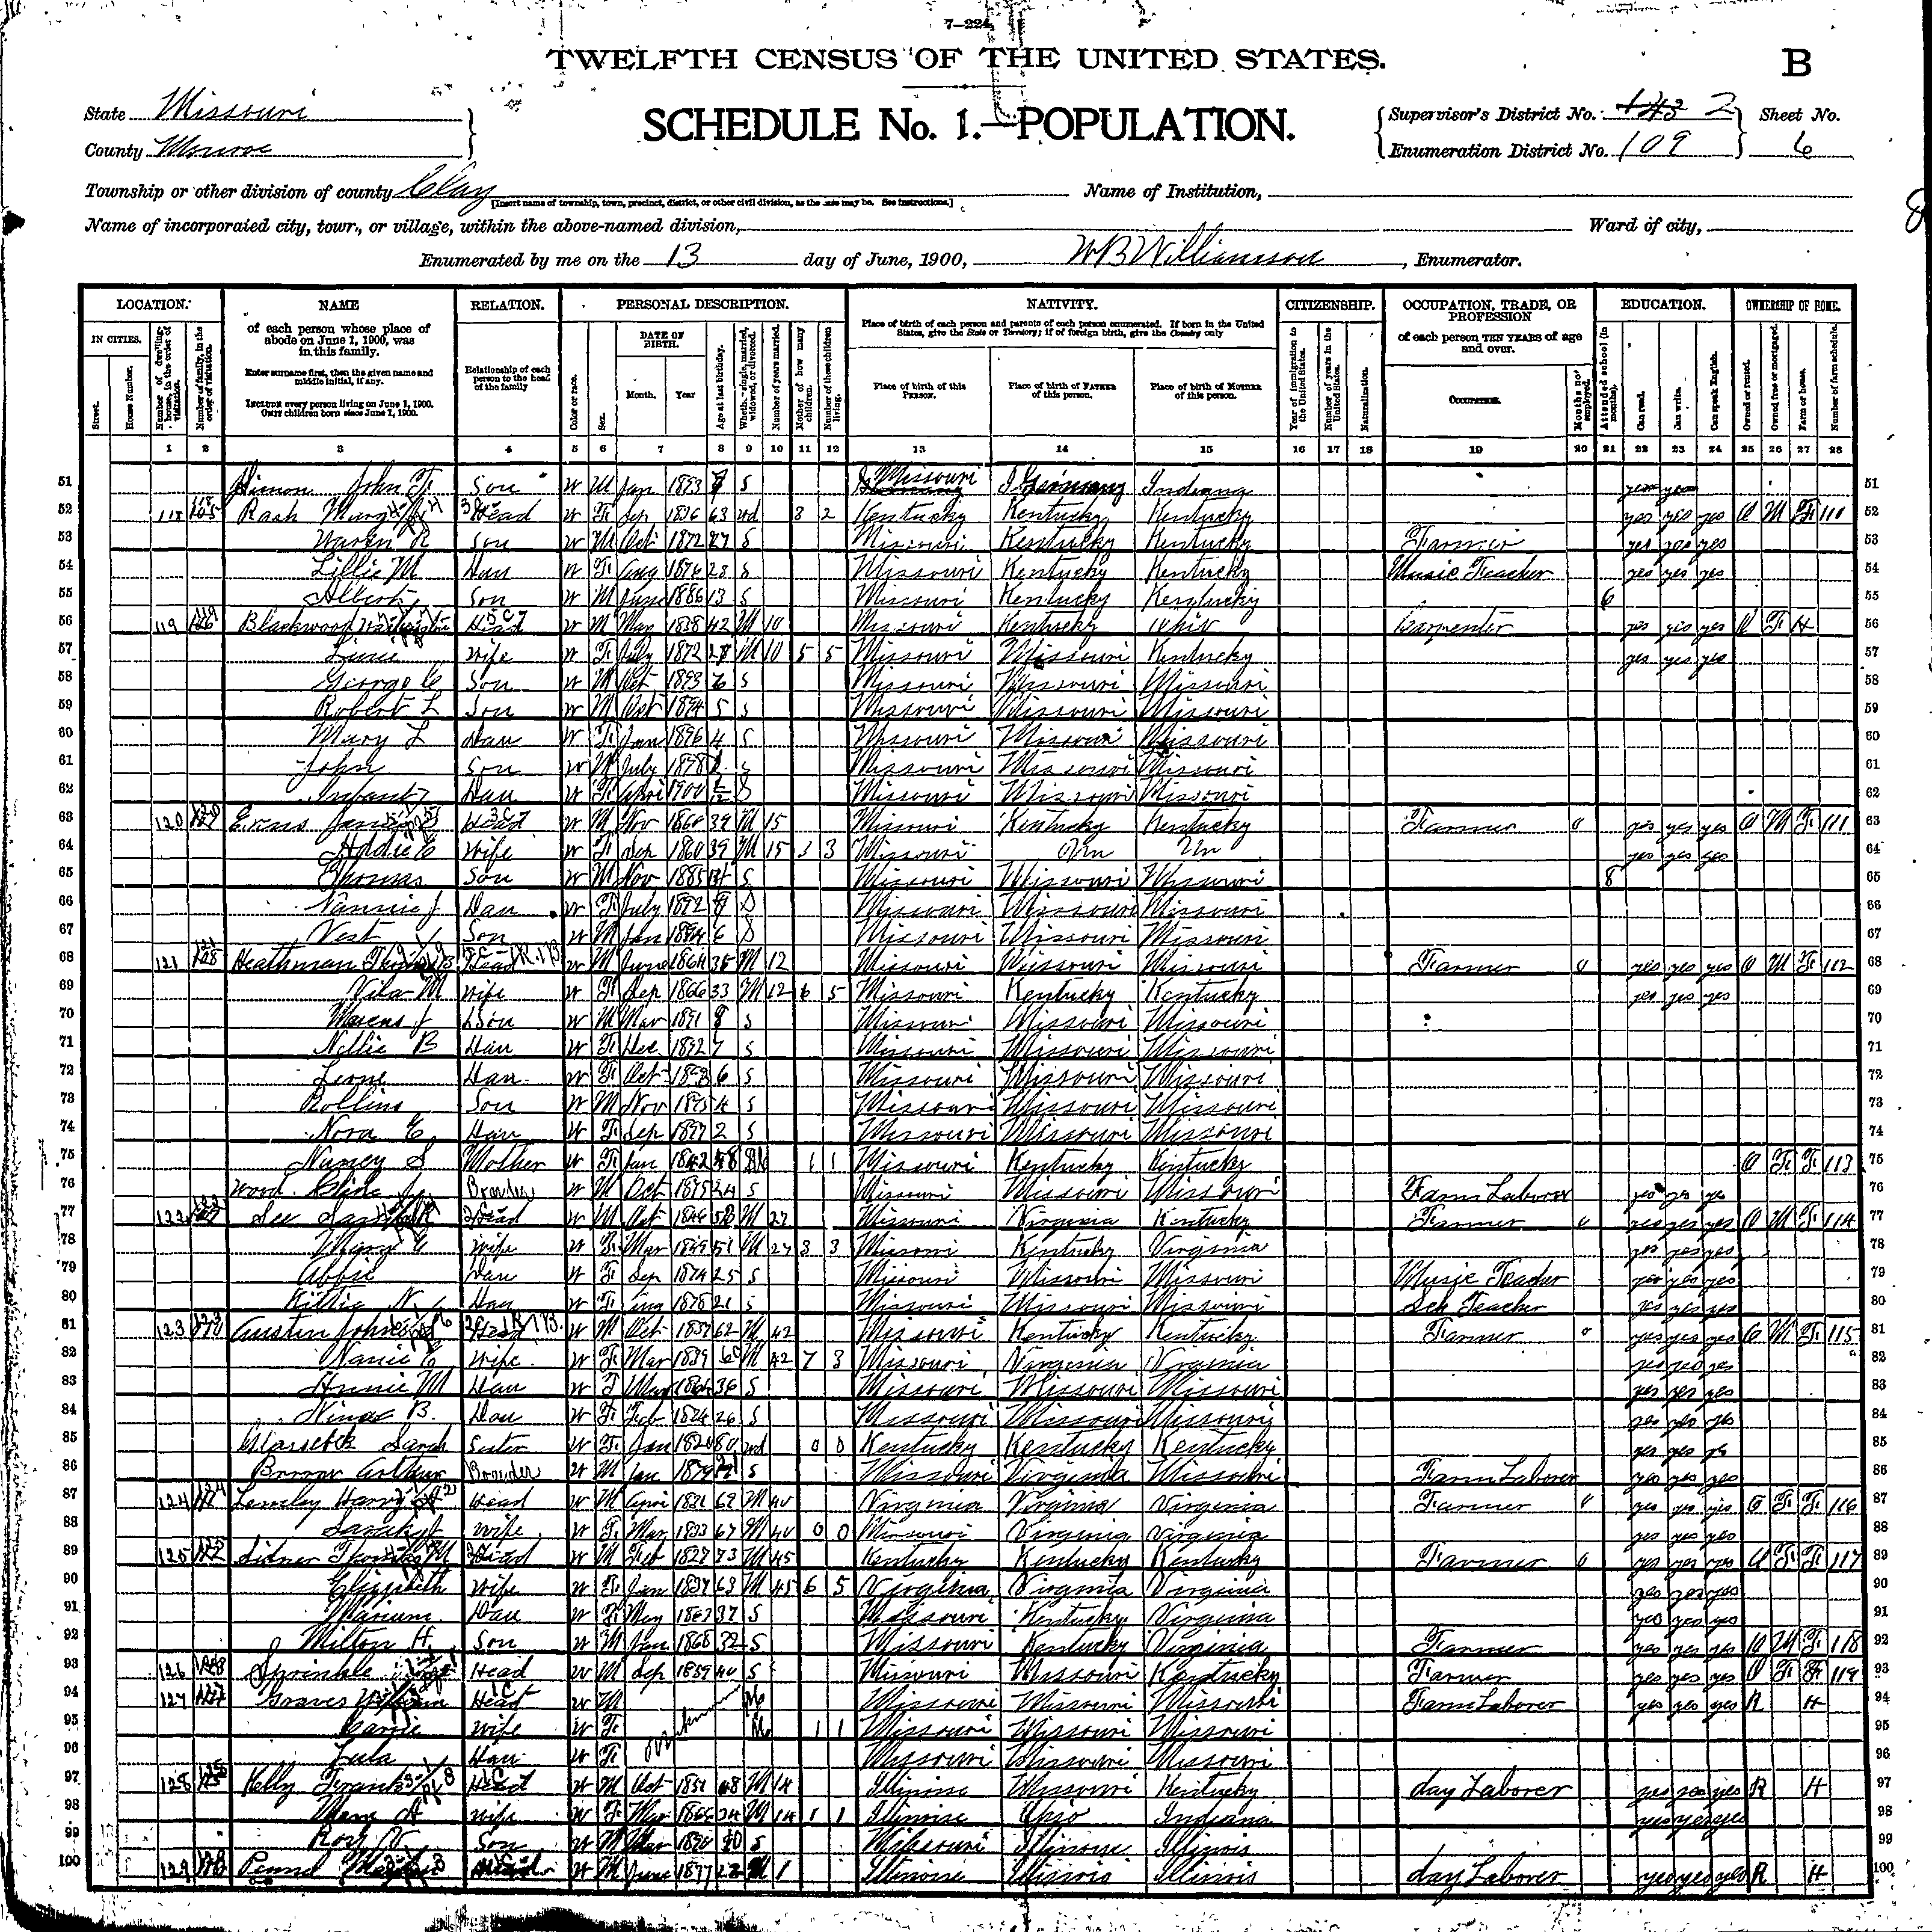 7—224
TWELFTH CENSUS OF THE UNITED STATES.
B
State Missouri
County Monroe
SCHEDULE No. 1.—POPULATION.
Supervisor's District No. 143 2 Sheet No.
Enumeration District No. 109 6
Township or other division of county Clay Name of Institution,
[Insert name of township, town, precinct, district, or other civil division, as the case may be. See instructions.]
Name of incorporated city, town, or village, within the above-named division, Ward of city,
Enumerated by me on the 13 day of June, 1900, WB Williamson, Enumerator.
LOCATION. NAME RELATION. PERSONAL DESCRIPTION. NATIVITY. CITIZENSHIP. OCCUPATION, TRADE, OR PROFESSION EDUCATION. OWNERSHIP OF HOME.
IN CITIES. Street. House Number. Number of dwelling house, in the order of visitation. Number of family, in the order of visitation.
of each person whose place of abode on June 1, 1900, was in this family.
Enter surname first, then the given name and middle initial, if any.
INCLUDE every person living on June 1, 1900. OMIT children born since June 1, 1900.
Relationship of each person to the head of the family
Color or race. Sex. DATE OF BIRTH. Month. Year Age at last birthday. Whether single, married, widowed, or divorced. Number of years married. Mother of how many children. Number of these children living.
Place of birth of each person and parents of each person enumerated. If born in the United States, give the State or Territory; if of foreign birth, give the Country only
Place of birth of this PERSON. Place of birth of FATHER of this person. Place of birth of MOTHER of this person.
Year of immigration to the United States. Number of years in the United States. Naturalization.
of each person TEN YEARS of age and over.
OCCUPATION. Months not employed. Attended school (in months). Can read. Can write. Can speak English. Owned or rented. Owned free or mortgaged. Farm or house. Number of farm schedule.
1 2 3 4 5 6 7 8 9 10 11 12 13 14 15 16 17 18 19 20 21 22 23 24 25 26 27 28
51 John F Son W M Jan 1893 7 S Missouri Germany Indiana yes yes 51
52 118 Rash Head W F Sep 1836 63 wd 3 2 Kentucky Kentucky Kentucky yes yes yes O M F 110 52
53 Son W M Oct 1872 27 S Missouri Kentucky Kentucky Farmer yes yes yes 53
54 Lillie M Dau W F Aug 1876 23 S Missouri Kentucky Kentucky Music Teacher yes yes yes 54
55 Albert Son W M June 1886 13 S Missouri Kentucky Kentucky 6 55
56 119 Blackwood Head W M May 1858 42 M 10 Missouri Kentucky Carpenter yes yes yes O F H 56
57 Wife W F July 1872 27 M 10 5 5 Missouri Missouri Kentucky yes yes yes 57
58 George C Son W M Oct 1893 6 S Missouri Missouri Missouri 58
59 Robert L Son W M Oct 1894 5 S Missouri Missouri Missouri 59
60 Mary L Dau W F Jan 1896 4 S Missouri Missouri Missouri 60
61 John Son W M July 1898 Missouri Missouri Missouri 61
62 Infant Dau W F Apri 1900 S Missouri Missouri Missouri 62
63 120 Head W M Nov 1860 39 M 15 Missouri Kentucky Kentucky Farmer 0 yes yes yes O M F 111 63
64 Addie C Wife W F Sep 1860 39 M 15 3 3 Missouri Un Un yes yes yes 64
65 Thomas Son W M Nov 1885 14 S Missouri Missouri Missouri 8 65
66 Nannie J Dau W F July 1892 S Missouri Missouri Missouri 66
67 Vest Son W M Jan 1894 6 S Missouri Missouri Missouri 67
68 121 Heathman Head W M June 1864 35 M 12 Missouri Missouri Missouri Farmer 0 yes yes yes O M F 112 68
69 M Wife W F Sep 1866 33 M 12 6 5 Missouri Kentucky Kentucky yes yes yes 69
70 J Son W M Mar 1891 S Missouri Missouri Missouri 70
71 Nellie B Dau W F Dec 1892 7 S Missouri Missouri Missouri 71
72 Leone Dau W F Oct 1893 6 S Missouri Missouri Missouri 72
73 Rollins Son W M Nov 1895 4 S Missouri Missouri Missouri 73
74 Nora E Dau W F Sep 1897 2 S Missouri Missouri Missouri 74
75 Nancy S Mother W F Jan 1842 58 1 1 Missouri Kentucky Kentucky O F F 113 75
76 Wood Boarder W M Oct 1875 24 S Missouri Missouri Missouri Farm Laborer yes yes yes 76
77 122 Head W M Oct 1846 53 M 27 Missouri Virginia Kentucky Farmer 0 yes yes yes O M F 114 77
78 Wife W F Mar 1849 51 M 27 3 3 Missouri Kentucky Virginia yes yes yes 78
79 Abbie Dau W F Sep 1874 25 S Missouri Missouri Missouri Music Teacher yes yes yes 79
80 Kittie N Dau W F Aug 1878 21 S Missouri Missouri Missouri Sch Teacher yes yes yes 80
81 123 Austin John Head W M Oct 1837 62 M 42 Missouri Kentucky Kentucky Farmer 0 yes yes yes O M F 115 81
82 Nanie E Wife W F Mar 1839 M 42 7 3 Missouri Virginia Virginia yes yes yes 82
83 Annie M Dau W F May 1864 36 S Missouri Missouri Missouri yes yes yes 83
84 B. Dau W F Feb 1874 26 S Missouri Missouri Missouri yes yes yes 84
85 Sarah Sister W F Jan 1820 80 wd 0 0 Kentucky Kentucky Kentucky yes yes yes 85
86 Arthur Boarder W M Jan 1879 S Missouri Virginia Missouri Farm Laborer yes yes yes 86
87 124 Lemley Harvy Head W M Apri 1831 69 M 40 Virginia Virginia Virginia Farmer 0 yes yes yes O F F 116 87
88 Wife W F Mar 1833 67 M 40 0 0 Missouri Virginia Virginia yes yes yes 88
89 125 Sidner Thomas M Head W M Feb 1827 73 M 45 Kentucky Kentucky Kentucky Farmer 0 yes yes yes O F F 117 89
90 Elizabeth Wife W F Jan 1837 63 M 45 6 5 Virginia Virginia Virginia yes yes yes 90
91 Marium Dau W F 37 S Missouri Kentucky Virginia yes yes yes 91
92 Milton H. Son W M Jan 1868 32 S Missouri Kentucky Virginia Farmer yes yes yes O M F 118 92
93 126 Sprinkle Head W M Sep 1859 40 S Missouri Missouri Kentucky Farmer yes yes yes O F F 119 93
94 127 Graves William Head W M Unknown Missouri Missouri Missouri Farm Laborer yes yes yes R H 94
95 Wife W F 1 1 Missouri Missouri Missouri 95
96 Lula Dau W F Missouri Missouri Missouri 96
97 128 Kelly Frank Head W M Oct 1851 48 M 14 Illinoise Missouri Kentucky day Laborer yes yes yes R H 97
98 Wife W F Mar 34 M 14 1 1 Illinoise Ohio Indiana yes yes yes 98
99 Roy Son W M Mar 1890 10 S Missouri Illinoise Illinois 99
100 129 Head W M June M 1 Illinoise Illinois Illinois day Laborer yes yes yes R H 100